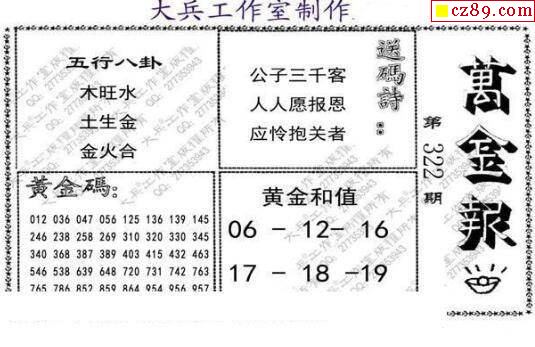 大兵工作室制作
cz89.com
五行八卦
木旺水
土生金
金火合
送碼詩：
公子三千客
人人愿报恩
应怜抱关者
萬金報
第322期
黃金碼：
012 036 047 056 125 136 139 145
246 238 258 269 310 320 330 345
340 368 387 389 403 415 432 463
546 538 639 648 720 731 742 763
765 786 852 859 864 954 956 957
黄金和值
06 - 12- 16
17 - 18 -19